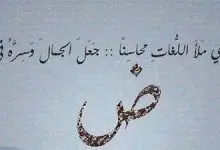 ملَأَ اللُّغَاتِ مَحَاسِنًا :: جَعَلَ الجمَالَ وَسِرَّهُ
ض